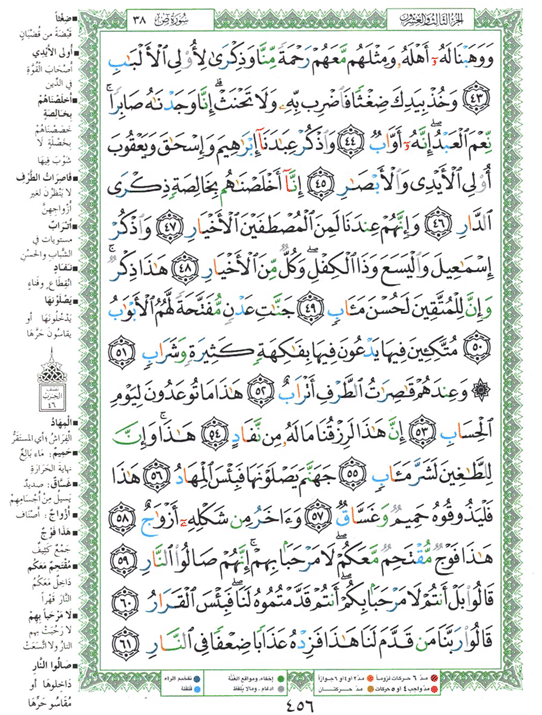 الجزء الثالث والعشرون
سورة ص ٣٨
وَوَهَبْنَا لَهُۥٓ أَهْلَهُۥ وَمِثْلَهُم مَّعَهُمْ رَحْمَةً مِّنَّا وَذِكْرَىٰ لِأُو۟لِى ٱلْأَلْبَـٰبِ
٤٣ وَخُذْ بِيَدِكَ ضِغْثًا فَٱضْرِب بِّهِۦ وَلَا تَحْنَثْ ۗ إِنَّا وَجَدْنَـٰهُ صَابِرًا ۚ
نِّعْمَ ٱلْعَبْدُ ۖ إِنَّهُۥٓ أَوَّابٌ ٤٤ وَٱذْكُرْ عِبَـٰدَنَآ إِبْرَٰهِيمَ وَإِسْحَـٰقَ وَيَعْقُوبَ
أُو۟لِى ٱلْأَيْدِى وَٱلْأَبْصَـٰرِ ٤٥ إِنَّآ أَخْلَصْنَـٰهُم بِخَالِصَةٍ ذِكْرَى
ٱلدَّارِ ٤٦ وَإِنَّهُمْ عِندَنَا لَمِنَ ٱلْمُصْطَفَيْنَ ٱلْأَخْيَارِ ٤٧ وَٱذْكُرْ
إِسْمَـٰعِيلَ وَٱلْيَسَعَ وَذَا ٱلْكِفْلِ ۖ وَكُلٌّ مِّنَ ٱلْأَخْيَارِ ٤٨ هَـٰذَا ذِكْرٌ ۚ
وَإِنَّ لِلْمُتَّقِينَ لَحُسْنَ مَـَٔابٍ ٤٩ جَنَّـٰتِ عَدْنٍ مُّفَتَّحَةً لَّهُمُ ٱلْأَبْوَٰبُ
٥٠ مُتَّكِـِٔينَ فِيهَا يَدْعُونَ فِيهَا بِفَـٰكِهَةٍ كَثِيرَةٍ وَشَرَابٍ ٥١
۞ وَعِندَهُمْ قَـٰصِرَٰتُ ٱلطَّرْفِ أَتْرَابٌ ٥٢ هَـٰذَا مَا تُوعَدُونَ لِيَوْمِ
ٱلْحِسَابِ ٥٣ إِنَّ هَـٰذَا لَرِزْقُنَا مَا لَهُۥ مِن نَّفَادٍ ٥٤ هَـٰذَا ۚ وَإِنَّ
لِلطَّـٰغِينَ لَشَرَّ مَـَٔابٍ ٥٥ جَهَنَّمَ يَصْلَوْنَهَا فَبِئْسَ ٱلْمِهَادُ ٥٦ هَـٰذَا
فَلْيَذُوقُوهُ حَمِيمٌ وَغَسَّاقٌ ٥٧ وَءَاخَرُ مِن شَكْلِهِۦٓ أَزْوَٰجٌ ٥٨
هَـٰذَا فَوْجٌ مُّقْتَحِمٌ مَّعَكُمْ ۖ لَا مَرْحَبًۢا بِهِمْ ۚ إِنَّهُمْ صَالُوا۟ ٱلنَّارِ ٥٩
قَالُوا۟ بَلْ أَنتُمْ لَا مَرْحَبًۢا بِكُمْ ۖ أَنتُمْ قَدَّمْتُمُوهُ لَنَا ۖ فَبِئْسَ ٱلْقَرَارُ ٦٠
قَالُوا۟ رَبَّنَا مَن قَدَّمَ لَنَا هَـٰذَا فَزِدْهُ عَذَابًا ضِعْفًا فِى ٱلنَّارِ ٦١
ضِغْثاً
قبضةً من قُضبان
أولي الأيدي
أصحابَ القُوَّة
في الدّين
أخلصناهم
بخالصة
خَصَصْناهُم
بخَصْلَةٍ لا
شَوْبَ فيها
قاصرات الطرف
لا يَنظُرْنَ لغيرِ
أزواجِهِنَّ
أتراب
مستويات في
الشباب والحسن
نفاد
انقطاعٍ وفناءٍ
يصلونها
يدخلونها أو
يقاسون حَرَّها
نصف
الحزب
٤٦
المهاد
الفراش؛ أي المستقرُّ
حميم: ماء بالغٌ
نهاية الحرارة
غسّاق: صديدٌ
يسيل من أجسامهم
أزواج: أصناف
هذا فوج
جمعٌ كثيف
مقتحم معكم
داخل معكم
النار قهراً
لا مرحباً بهم
لا رَحُبَت بهم
النارُ ولا اتَّسَعَت
صالوا النار
داخلوها أو
مُقَاسُو حَرِّها
مدّ ٦ حركات لزوماً مدّ ٢ أو ٤ أو ٦ جوازاً إخفاء، ومواقع الغُنَّة تفخيم الراء
مدّ واجب ٤ أو ٥ حركات مدّ حركتــان إدغام، وما لا يُلفَظ قلقلة
٤٥٦